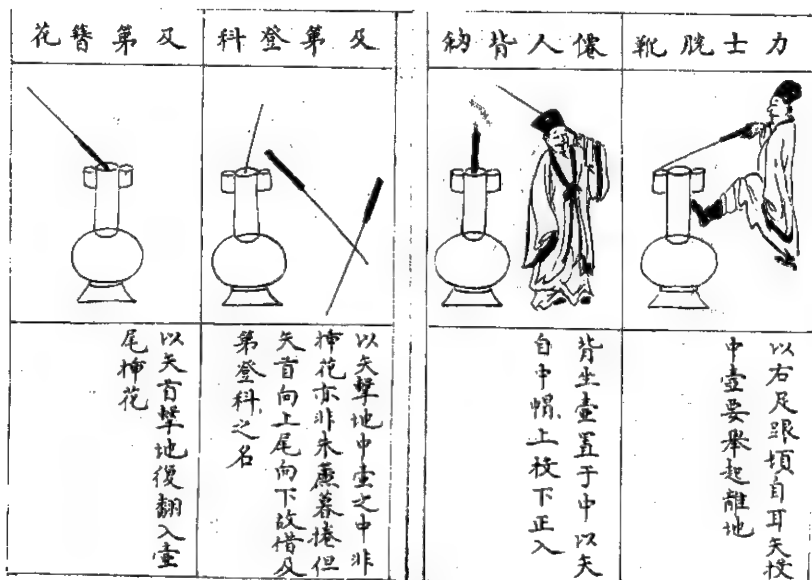 力士脱靴
以右足跟頂自耳矢投
中壺要舉起離地
僊人背釰
背坐壺置于中以矢
自巾帽上投下正入
及第登科
以矢擊地中壺之中非
挿花亦非朱簾暮捲但
矢首向上尾向下故借及
第登科之名
及第簪花
以矢首擊地復翻入壺
尾挿花